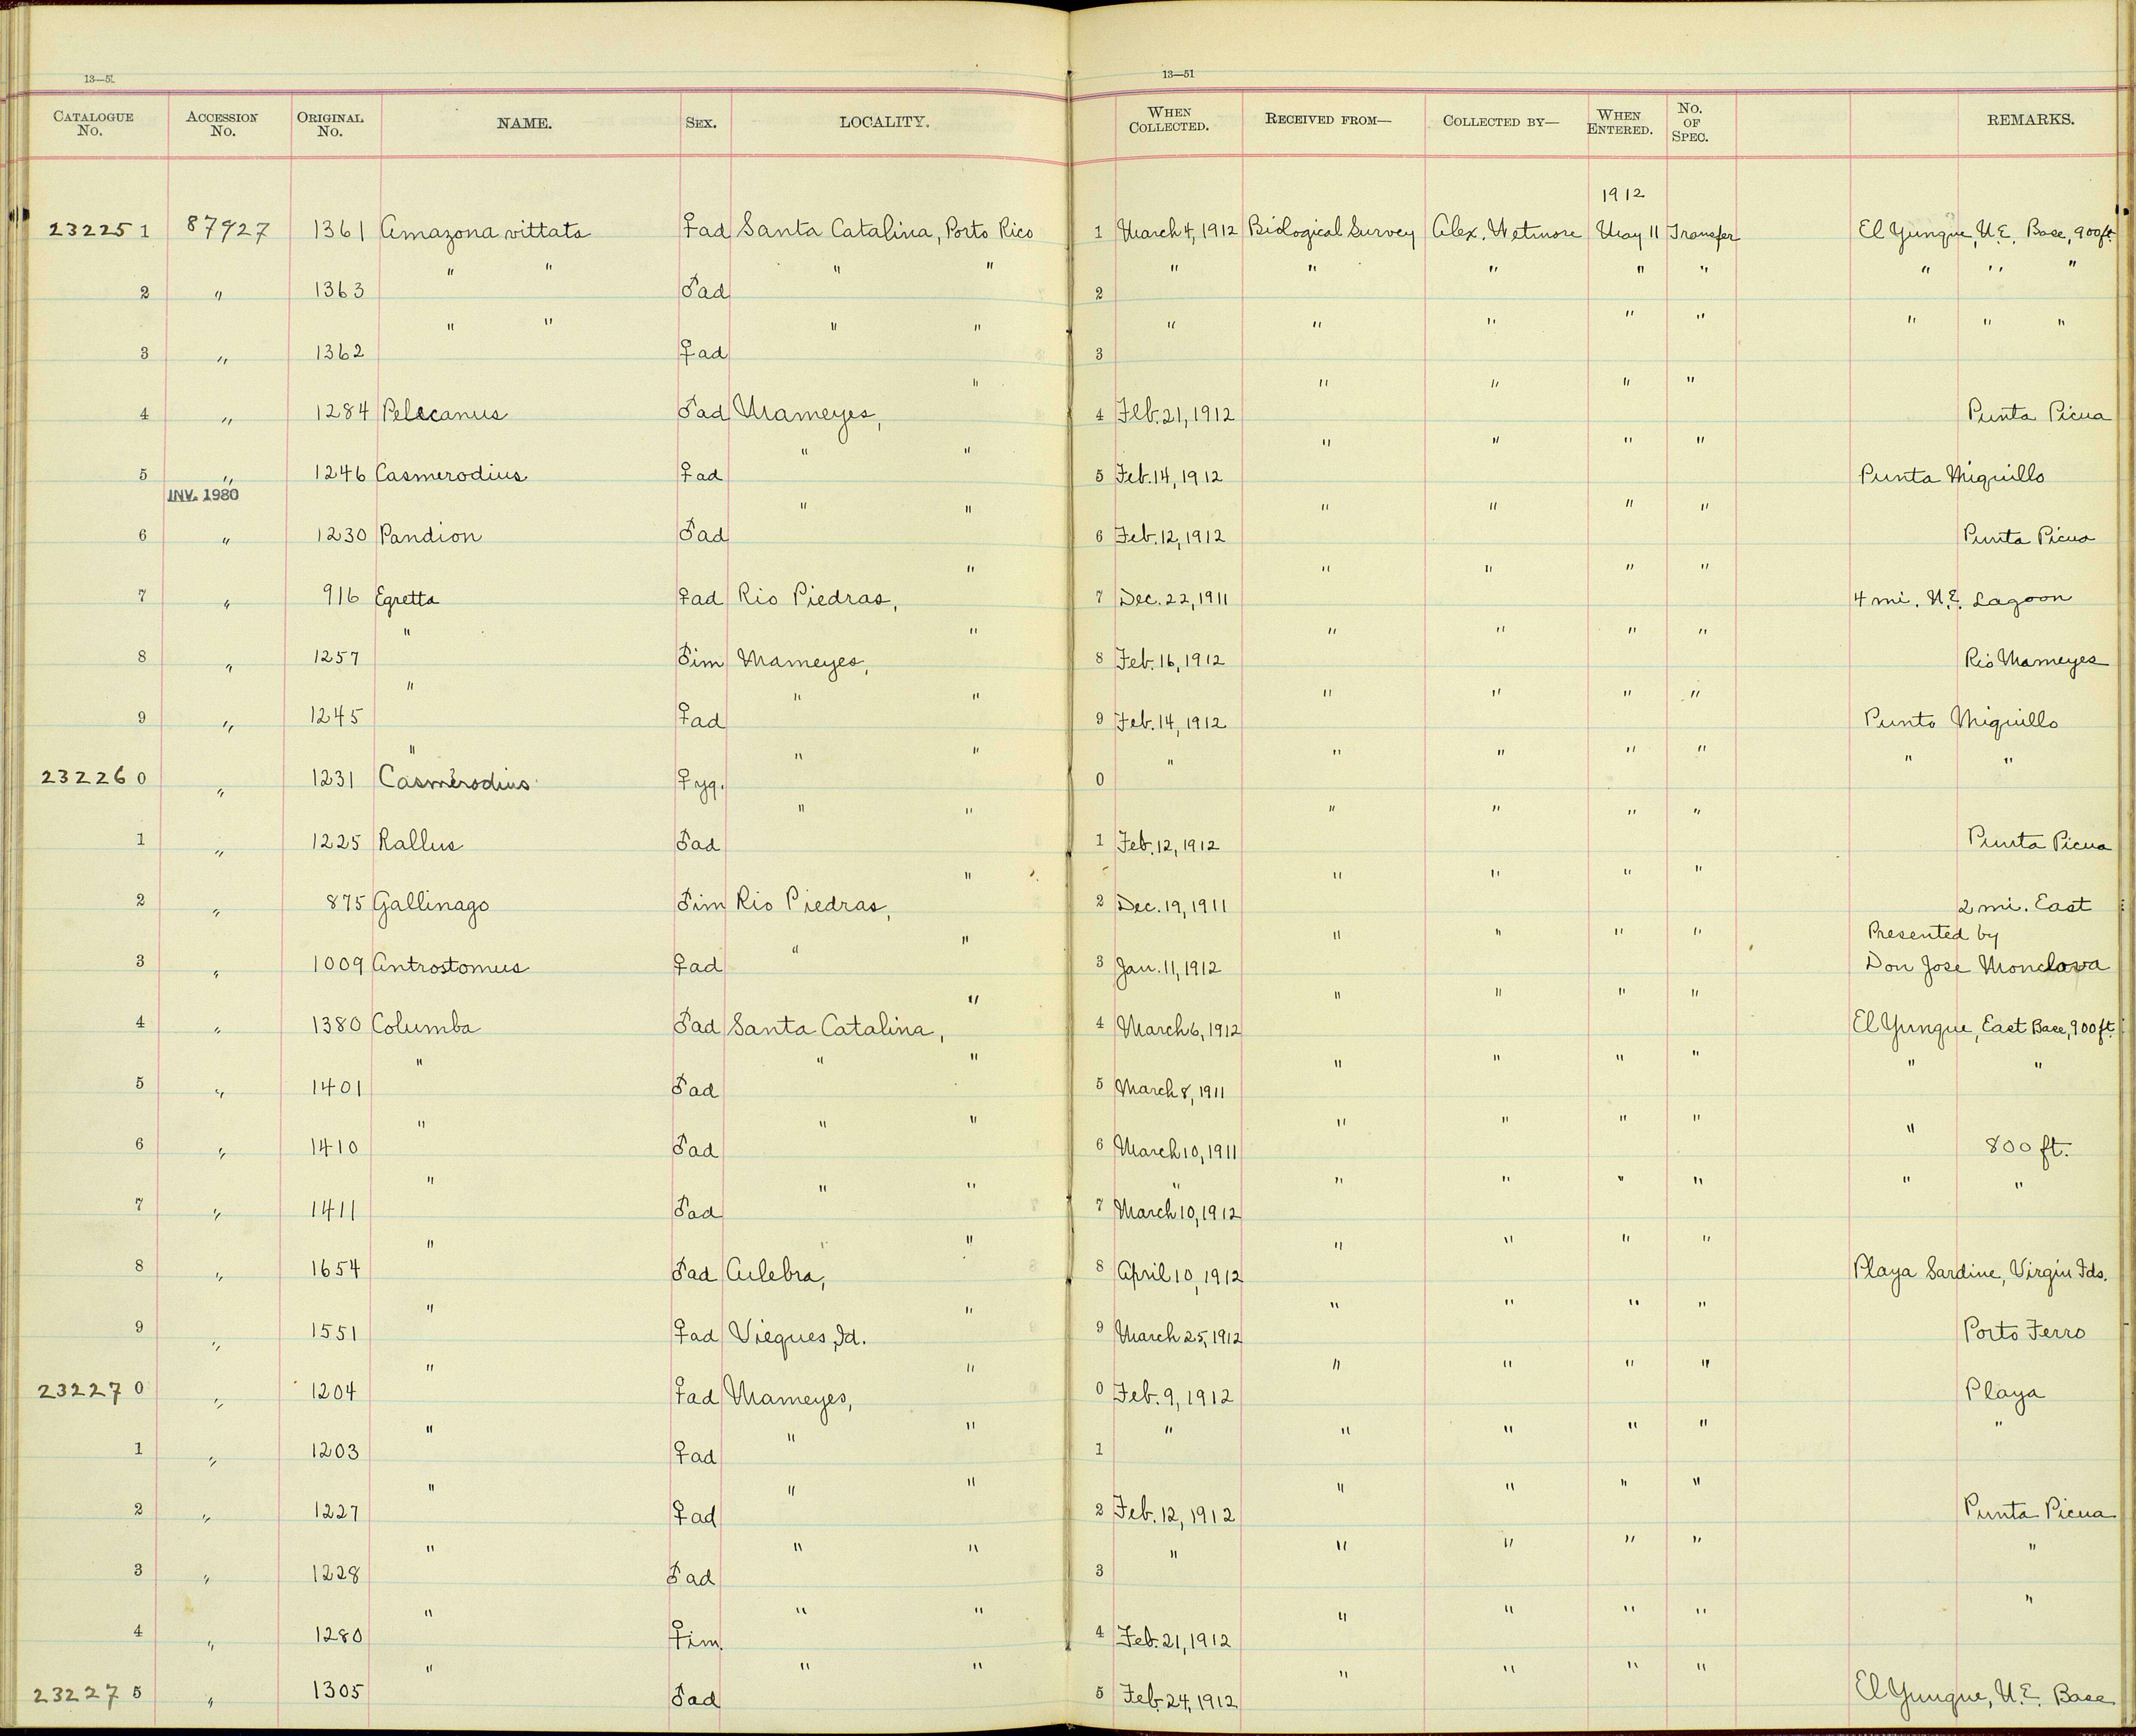 13—51
13—51
CATALOGUE No. ACCESSION No. ORIGINAL No. NAME. SEX. LOCALITY. WHEN COLLECTED. RECEIVED FROM— COLLECTED BY— WHEN ENTERED. No. OF SPEC. REMARKS.
1912
232251 87927 1361 Amazona vittata ♀ad Santa Catalina, Porto Rico 1 March 4, 1912 Biological Survey Alex. Wetmore May 11 Transfer El Yunque, N.E. Base, 900ft
2 " 1363 " " ♂ad " " 2 " " " " " " " "
3 " 1362 " " ♀ad " " 3 " " " " " " " "
4 " 1284 Pelecanus ♂ad Mameyes, " 4 Feb. 21, 1912 " " " " Punta Picua
5 " 1246 Casmerodius ♀ad " " 5 Feb. 14, 1912 " " " " Punta Miquillo
INV. 1980
6 " 1230 Pandion ♂ad " " 6 Feb. 12, 1912 " " " " Punta Picua
7 " 916 Egretta ♀ad Rio Piedras, " 7 Dec. 22, 1911 " " " " 4 mi. N.E. Lagoon
8 " 1257 " ♂im Mameyes, " 8 Feb. 16, 1912 " " " " Rio Mameyes
9 " 1245 " ♀ad " " 9 Feb. 14, 1912 " " " " Punta Miquillo
232260 " 1231 " Casmerodius ♀yg. " " 0 " " " " " " "
1 " 1225 Rallus ♂ad " " 1 Feb. 12, 1912 " " " " Punta Picua
2 " 875 Gallinago ♂im Rio Piedras, " 2 Dec. 19, 1911 " " " " 2 mi. East
Presented by
3 " 1009 Antrostomus ♀ad " " 3 Jan. 11, 1912 " " " " Don Jose Monclova
4 " 1380 Columba ♂ad Santa Catalina, " 4 March 6, 1912 " " " " El Yunque, East Base, 900 ft.
5 " 1401 " ♂ad " " 5 March 8, 1911 " " " " " "
6 " 1410 " ♂ad " " 6 March 10, 1911 " " " " " 800 ft.
7 " 1411 " ♂ad " " 7 " March 10, 1912 " " " " " "
8 " 1654 " ♂ad Culebra, " 8 April 10, 1912 " " " " Playa Sardine, Virgin Ids.
9 " 1551 " ♀ad Vieques Id. " 9 March 25, 1912 " " " " Porto Ferro
232270 " 1204 " ♀ad Mameyes, " 0 Feb. 9, 1912 " " " " Playa
1 " 1203 " ♀ad " " 1 " " " " " "
2 " 1227 " ♀ad " " 2 Feb. 12, 1912 " " " " Punta Picua
3 " 1228 " ♂ad " " 3 " " " " " "
4 " 1280 " ♀im. " " 4 Feb. 21, 1912 " " " " "
232275 " 1305 " ♂ad " " 5 Feb. 24, 1912 " " " " El Yunque, N.E. Base